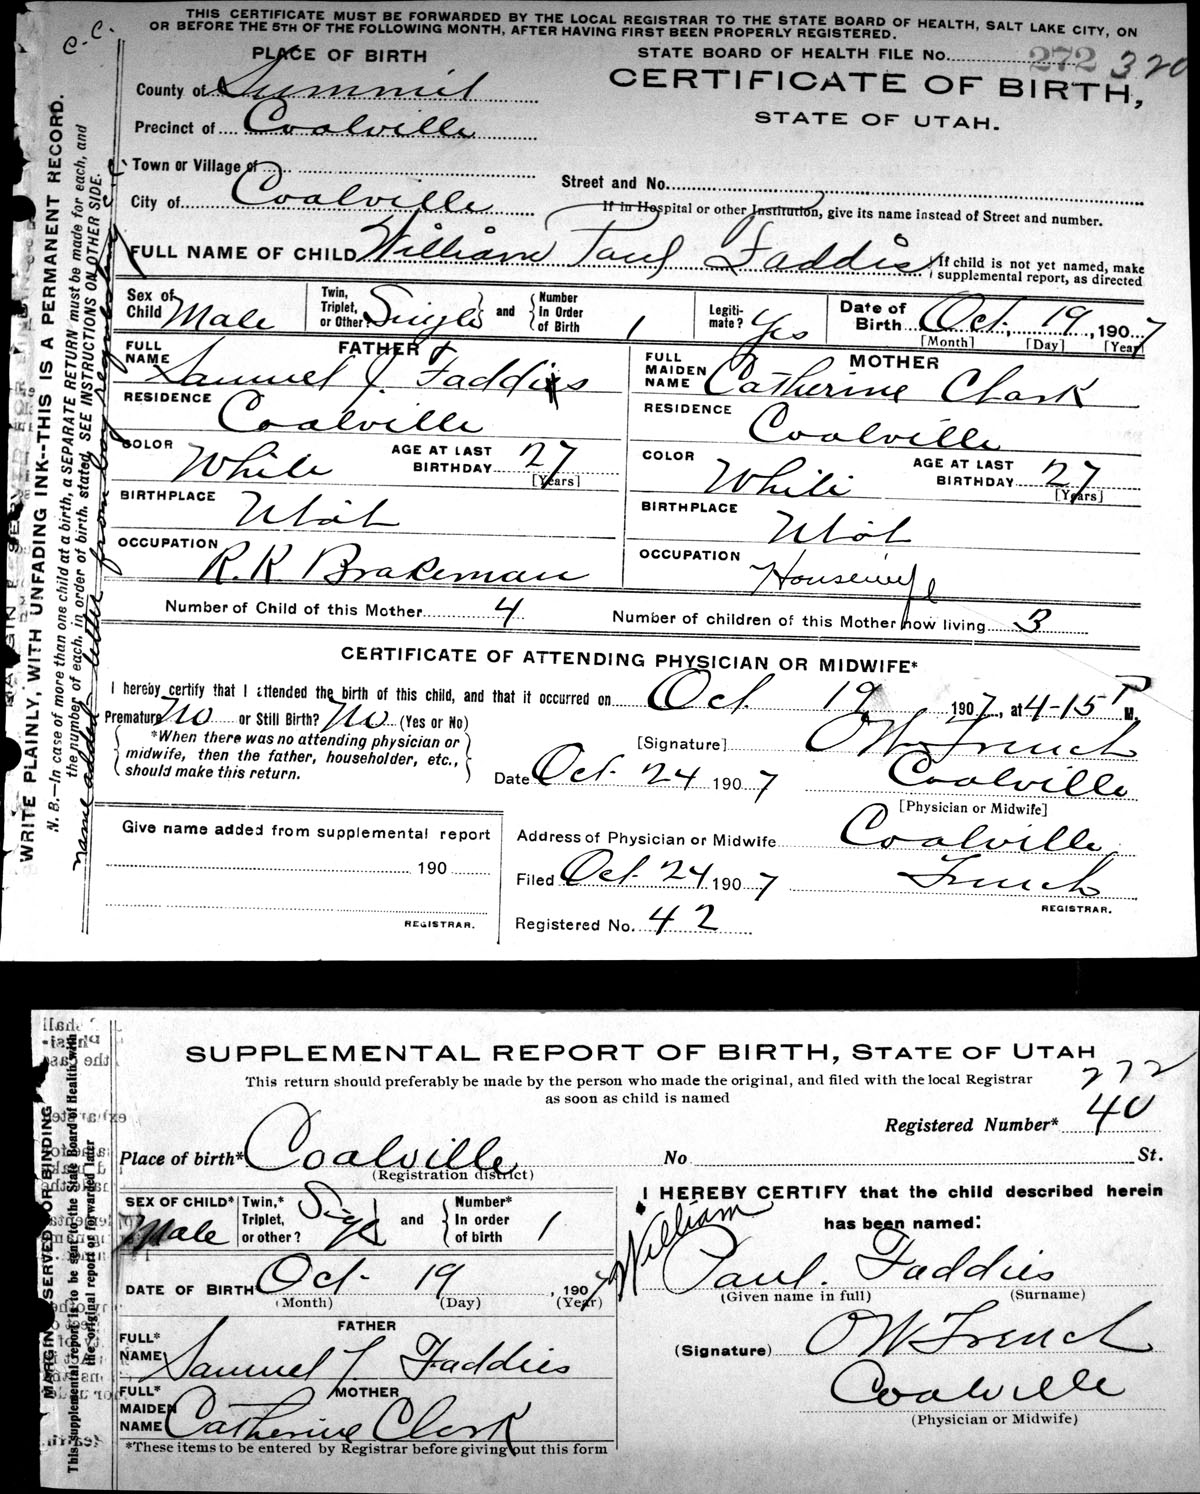 THIS CERTIFICATE MUST BE FORWARDED BY THE LOCAL REGISTRAR TO THE STATE BOARD OF HEALTH, SALT LAKE CITY, ON
OR BEFORE THE 5TH OF THE FOLLOWING MONTH, AFTER HAVING FIRST BEEN PROPERLY REGISTERED.
C.C.
PLACE OF BIRTH
STATE BOARD OF HEALTH FILE No. 272 320
County of Summit
CERTIFICATE OF BIRTH,
Precinct of Coalville
STATE OF UTAH.
Town or Village of
Street and No.
City of Coalville
If in Hospital or other Institution, give its name instead of Street and number.
FULL NAME OF CHILD William Paul Faddis
If child is not yet named, make
supplemental report, as directed
Sex of Child Male
Twin, Triplet, or Other? Single and Number In Order of Birth 1
Legitimate? Yes
Date of Birth Oct. 19, 1907
[Month] [Day] [Year]
FATHER
FULL NAME Samuel J. Faddies
RESIDENCE Coalville
COLOR White AGE AT LAST BIRTHDAY 27
[Years]
BIRTHPLACE Utah
OCCUPATION R.R. Brakeman
MOTHER
FULL MAIDEN NAME Catherine Clark
RESIDENCE Coalville
COLOR White AGE AT LAST BIRTHDAY 27
[Years]
BIRTHPLACE Utah
OCCUPATION Housewife
Number of Child of this Mother 4 Number of children of this Mother now living 3
CERTIFICATE OF ATTENDING PHYSICIAN OR MIDWIFE*
I hereby certify that I attended the birth of this child, and that it occurred on Oct 19 1907, at 4-15 P M.
Premature No or Still Birth? No (Yes or No)
*When there was no attending physician or
midwife, then the father, householder, etc.,
should make this return.
[Signature] O W French
Date Oct. 24 1907 Coalville
[Physician or Midwife]
Give name added from supplemental report
190
REGISTRAR.
Address of Physician or Midwife Coalville
Filed Oct. 24 1907 French
REGISTRAR.
Registered No. 42
WRITE PLAINLY, WITH UNFADING INK--THIS IS A PERMANENT RECORD.
N. B.—In case of more than one child at a birth, a SEPARATE RETURN must be made for each, and
the number of each, in order of birth, stated. SEE INSTRUCTIONS ON OTHER SIDE.
name added letter from
SUPPLEMENTAL REPORT OF BIRTH, STATE OF UTAH
This return should preferably be made by the person who made the original, and filed with the local Registrar
as soon as child is named
272
Registered Number* 40
Place of birth* Coalville No St.
(Registration district)
SEX OF CHILD* Male
Twin,* Triplet, or other? Single and Number* In order of birth 1
DATE OF BIRTH Oct. 19, 1907
(Month) (Day) (Year)
FATHER
FULL* NAME Samuel J. Faddies
MOTHER
FULL* MAIDEN NAME Catherine Clark
*These items to be entered by Registrar before giving out this form
I HEREBY CERTIFY that the child described herein
has been named:
William
Paul. Faddies
(Given name in full) (Surname)
(Signature) O W French
Coalville
(Physician or Midwife)
MARGIN RESERVED FOR BINDING
This supplemental report is to be sent to the State Board of Health with
the original report or forwarded later